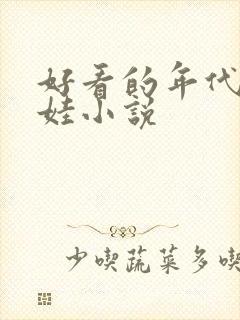 好看的年代
娃小说
少喫蔬菜多喫